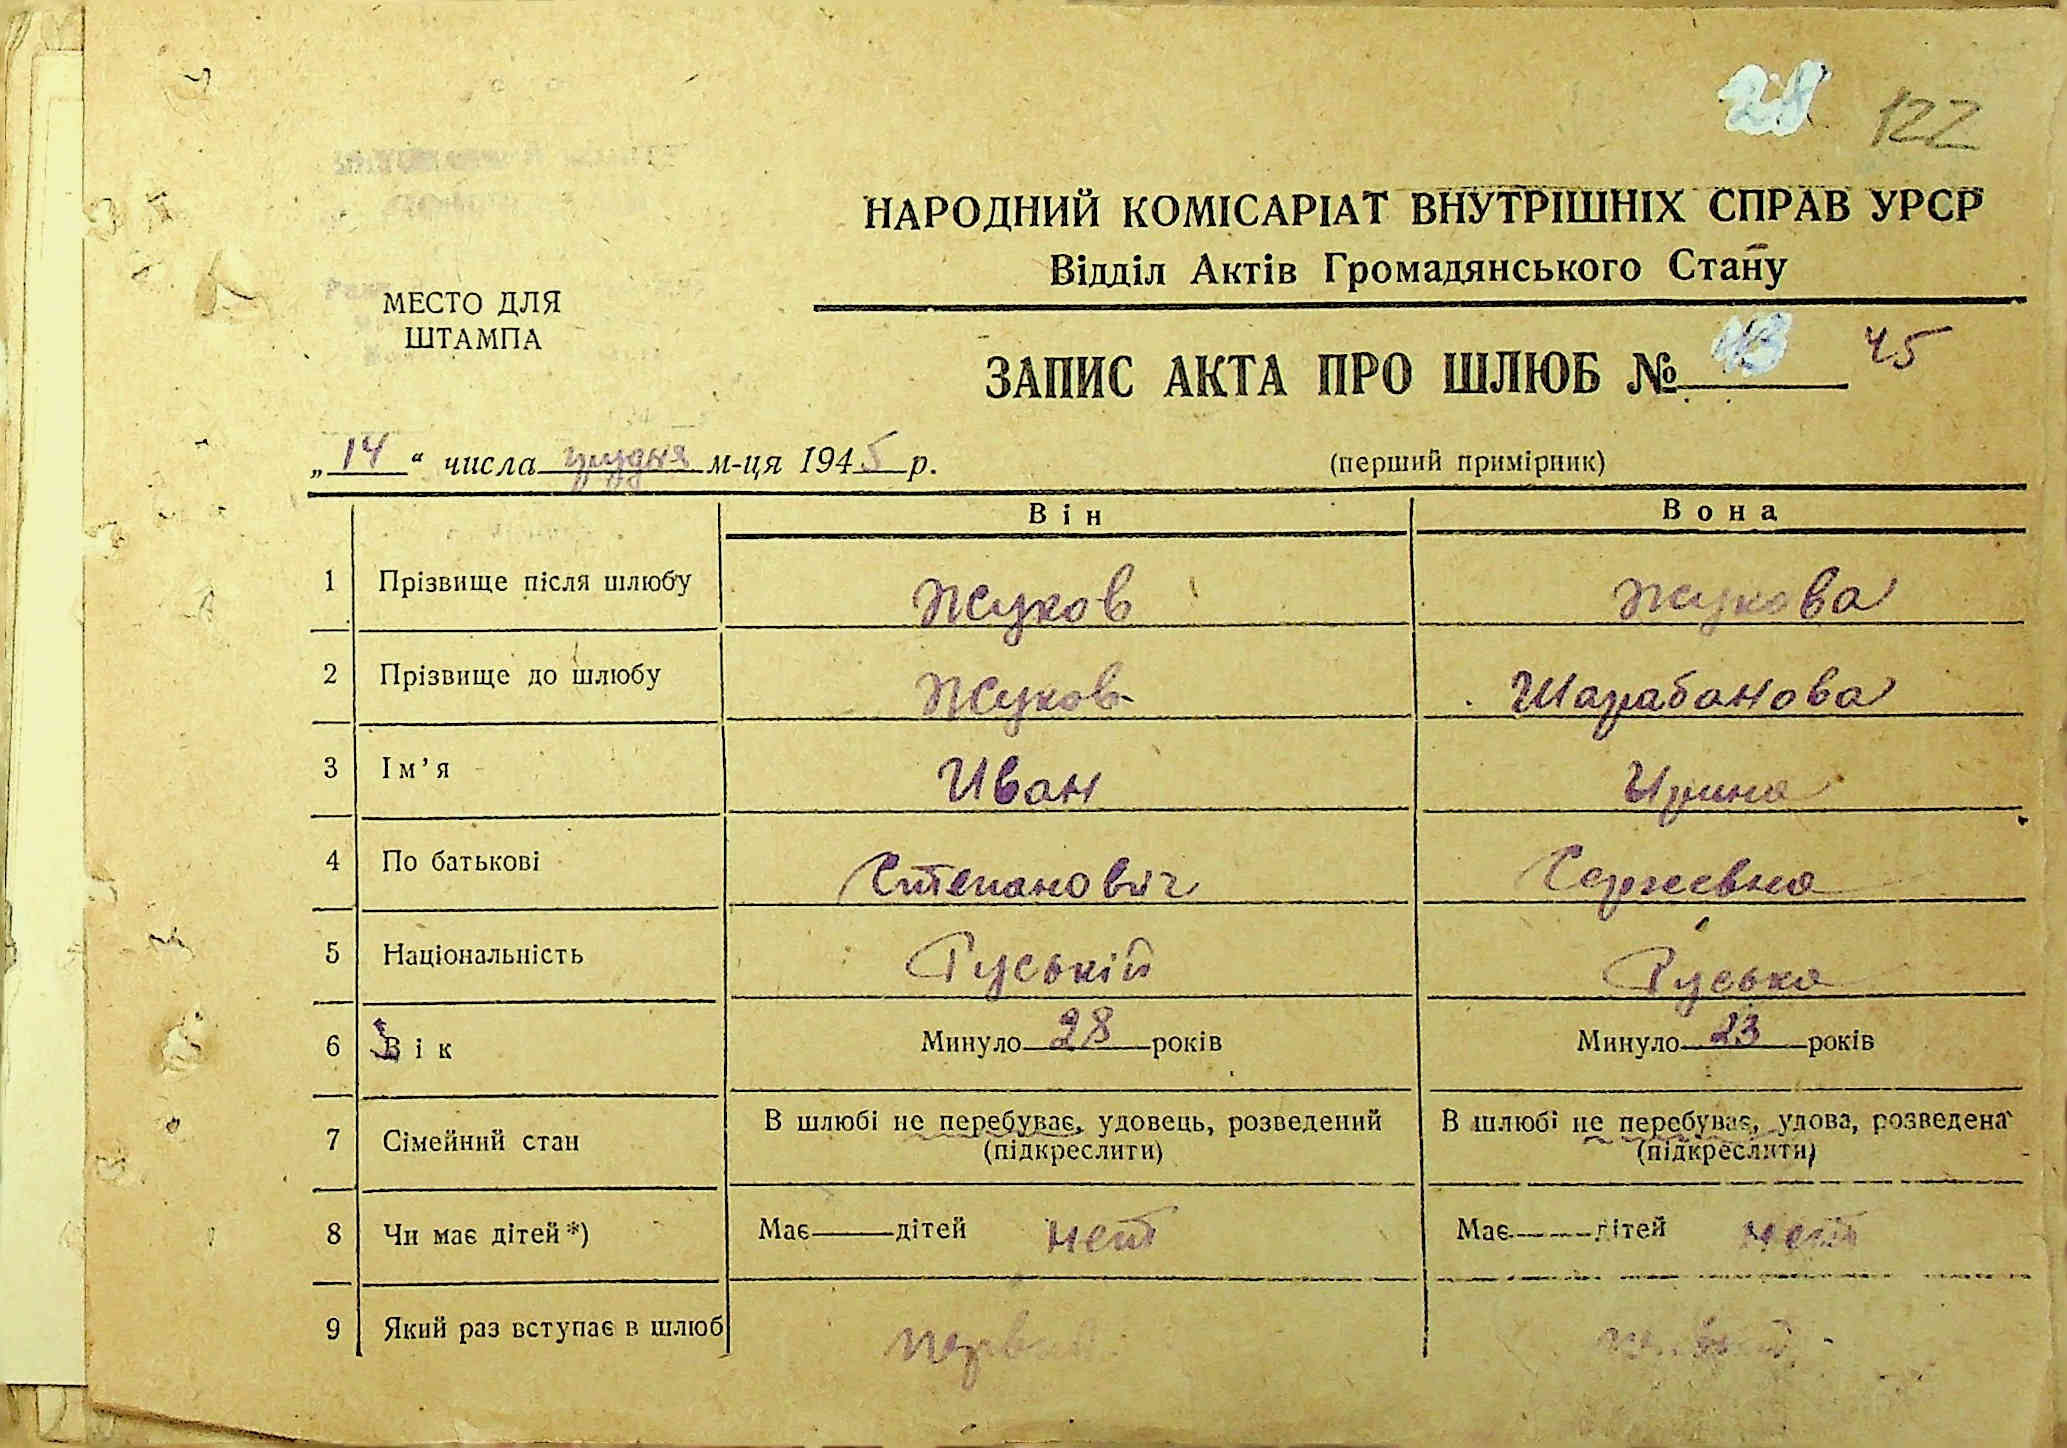 28 122
НАРОДНИЙ КОМІСАРІАТ ВНУТРІШНІХ СПРАВ УРСР
Відділ Актів Громадянського Стану
МЕСТО ДЛЯ
ШТАМПА
ЗАПИС АКТА ПРО ШЛЮБ № 45
„14“ числа грудня м-ця 1945 р.
(перший примірник)
Він Вона
1 Прізвище після шлюбу Жуков Жукова
2 Прізвище до шлюбу Жуков Шарабанова
3 Ім’я Иван Ирина
4 По батькові Степанович Сергеевна
5 Національність Руській Руська
6 Вік Минуло 28 років Минуло 23 років
7 Сімейний стан В шлюбі не перебуває, удовець, розведений (підкреслити) В шлюбі не перебуває, удова, розведена (підкреслити)
8 Чи має дітей*) Має дітей нет Має дітей нет
9 Який раз вступає в шлюб